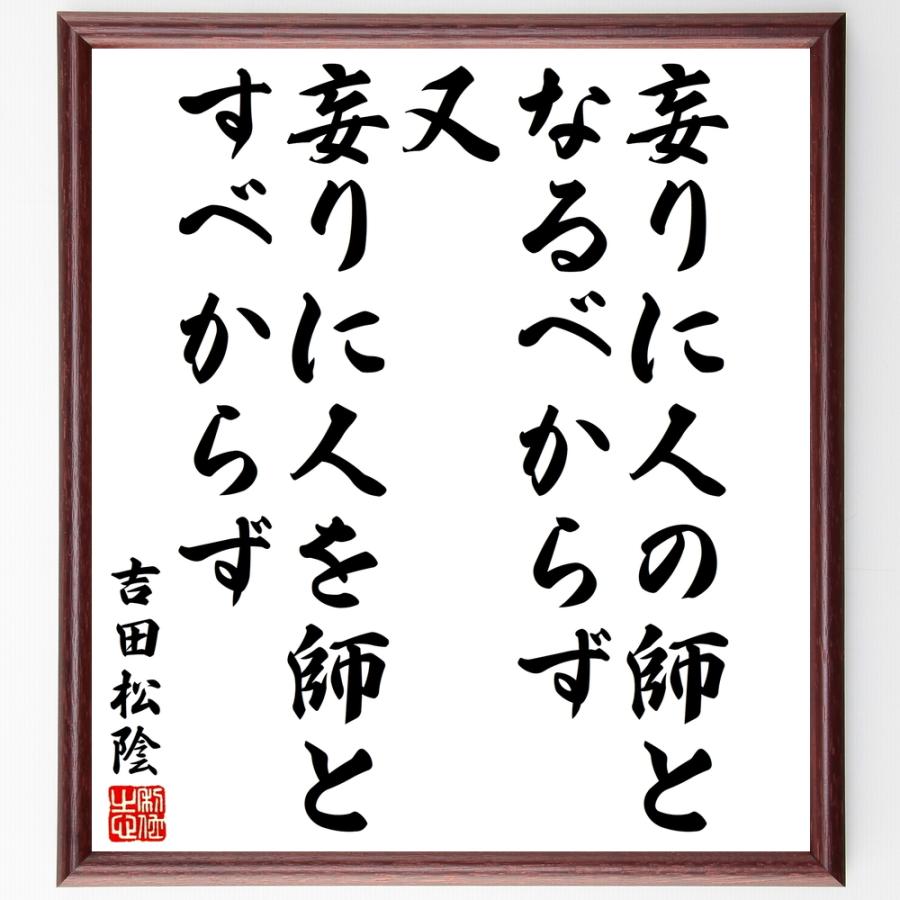 妄りに人の師と
なるべからず
又
妄りに人を師と
すべからず
吉田松陰